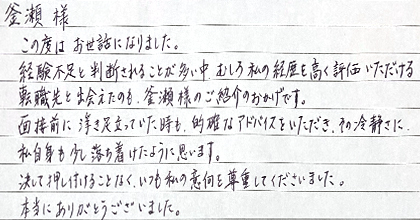 釜瀬 様
この度は お世話になりました。
経験不足と判断されることが多い中、むしろ私の経歴を高く評価いただける
転職先と出会えたのも、釜瀬様のご紹介のおかげです。
面接前に浮き足立っていた時も、的確なアドバイスをいただき、その冷静さに
私自身も少し落ち着けたように思います。
決して押し付けることなく、いつも私の意向を尊重してくださいました。
本当にありがとうございました。